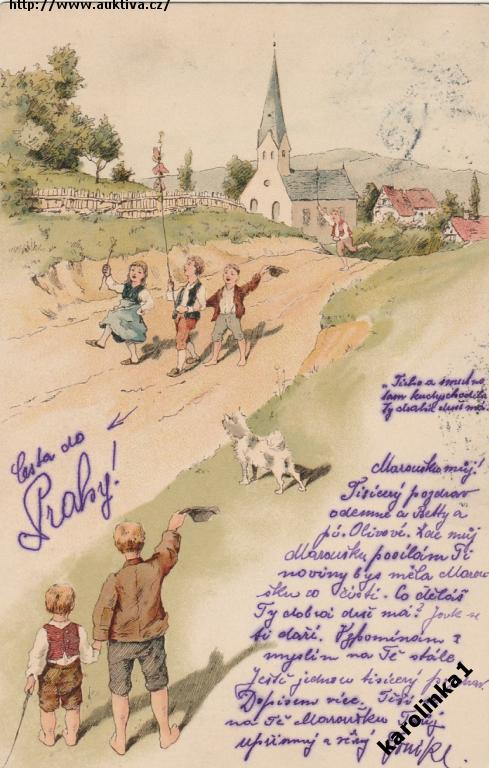 http://www.auktiva.cz/
"Ticho a smutno
tam kudy chodila
Ty drahá duše má."
Cesta do
Prahy!
Maroušku můj!
Tisícerý pozdrav
odemne a Betty a
pí. Olivové. Zde můj
Maroušku posílám Ti
noviny bys měla Marou
šku co čísti. Co děláš
Ty dobrá duše má? Jak se
ti daří. Vzpomínám a
myslím na Tě stále
Ještě jednou tisícerý pozdrav
Dopisem více. Těší
na Tě Maroušku Tvůj
upřímný a věrný
karolinka1